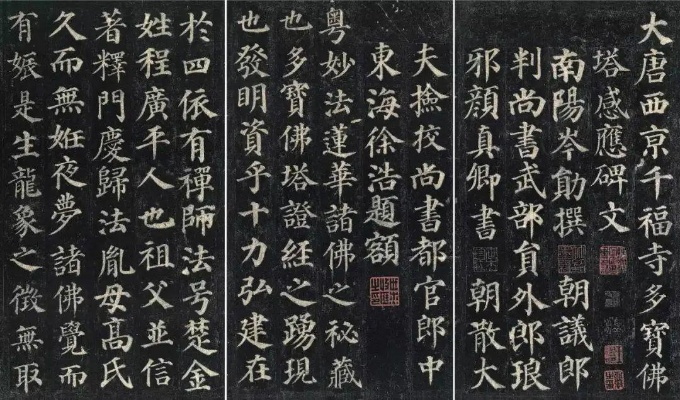 大唐西京千福寺多寶佛
塔感應碑文
南陽岑勛撰 朝議郎
判尚書武部員外郎琅
邪顏真卿書 朝散大
夫撿挍尚書都官郎中
東海徐浩題額
粵妙法蓮華諸佛之秘藏
也多寶佛塔證經之踴現
也發明資乎十力弘建在
於四依有禪師法号楚金
姓程廣平人也祖父並信
著釋門慶歸法胤母髙氏
久而無姙夜夢諸佛覺而
有娠是生龍象之徵無取